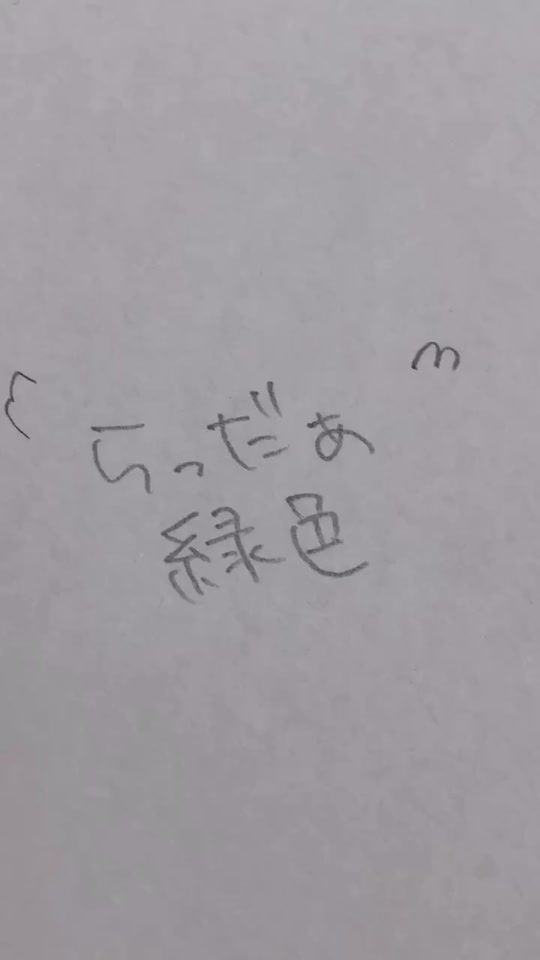 らっだぁ
緑色